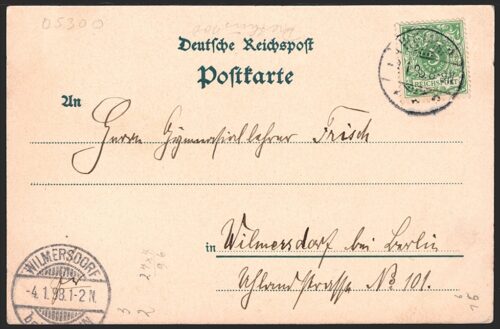 05300
Deutsche Reichspost
Postkarte
An
Herrn Gymnasiallehrer Frisch
in Wilmersdorf bei Berlin
Uhlandstrasse No 101.
WILMERSDORF
-4.1.98.1-2N
24x4
96
3
2
6
16